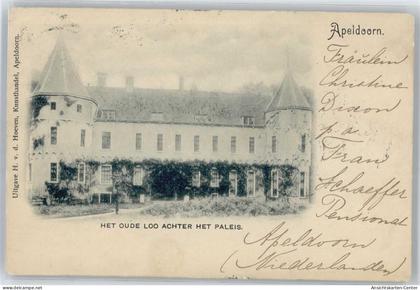 Apeldoorn.
Uitgave H. v. d. Hoeven, Kunsthandel, Apeldoorn.
HET OUDE LOO ACHTER HET PALEIS.
Fräulein
Christine
Dixon
p. a.
Frau
Schaeffer
Pensionat
Apeldoorn
(Niederlanden)
Ansichtskarten-Center.de